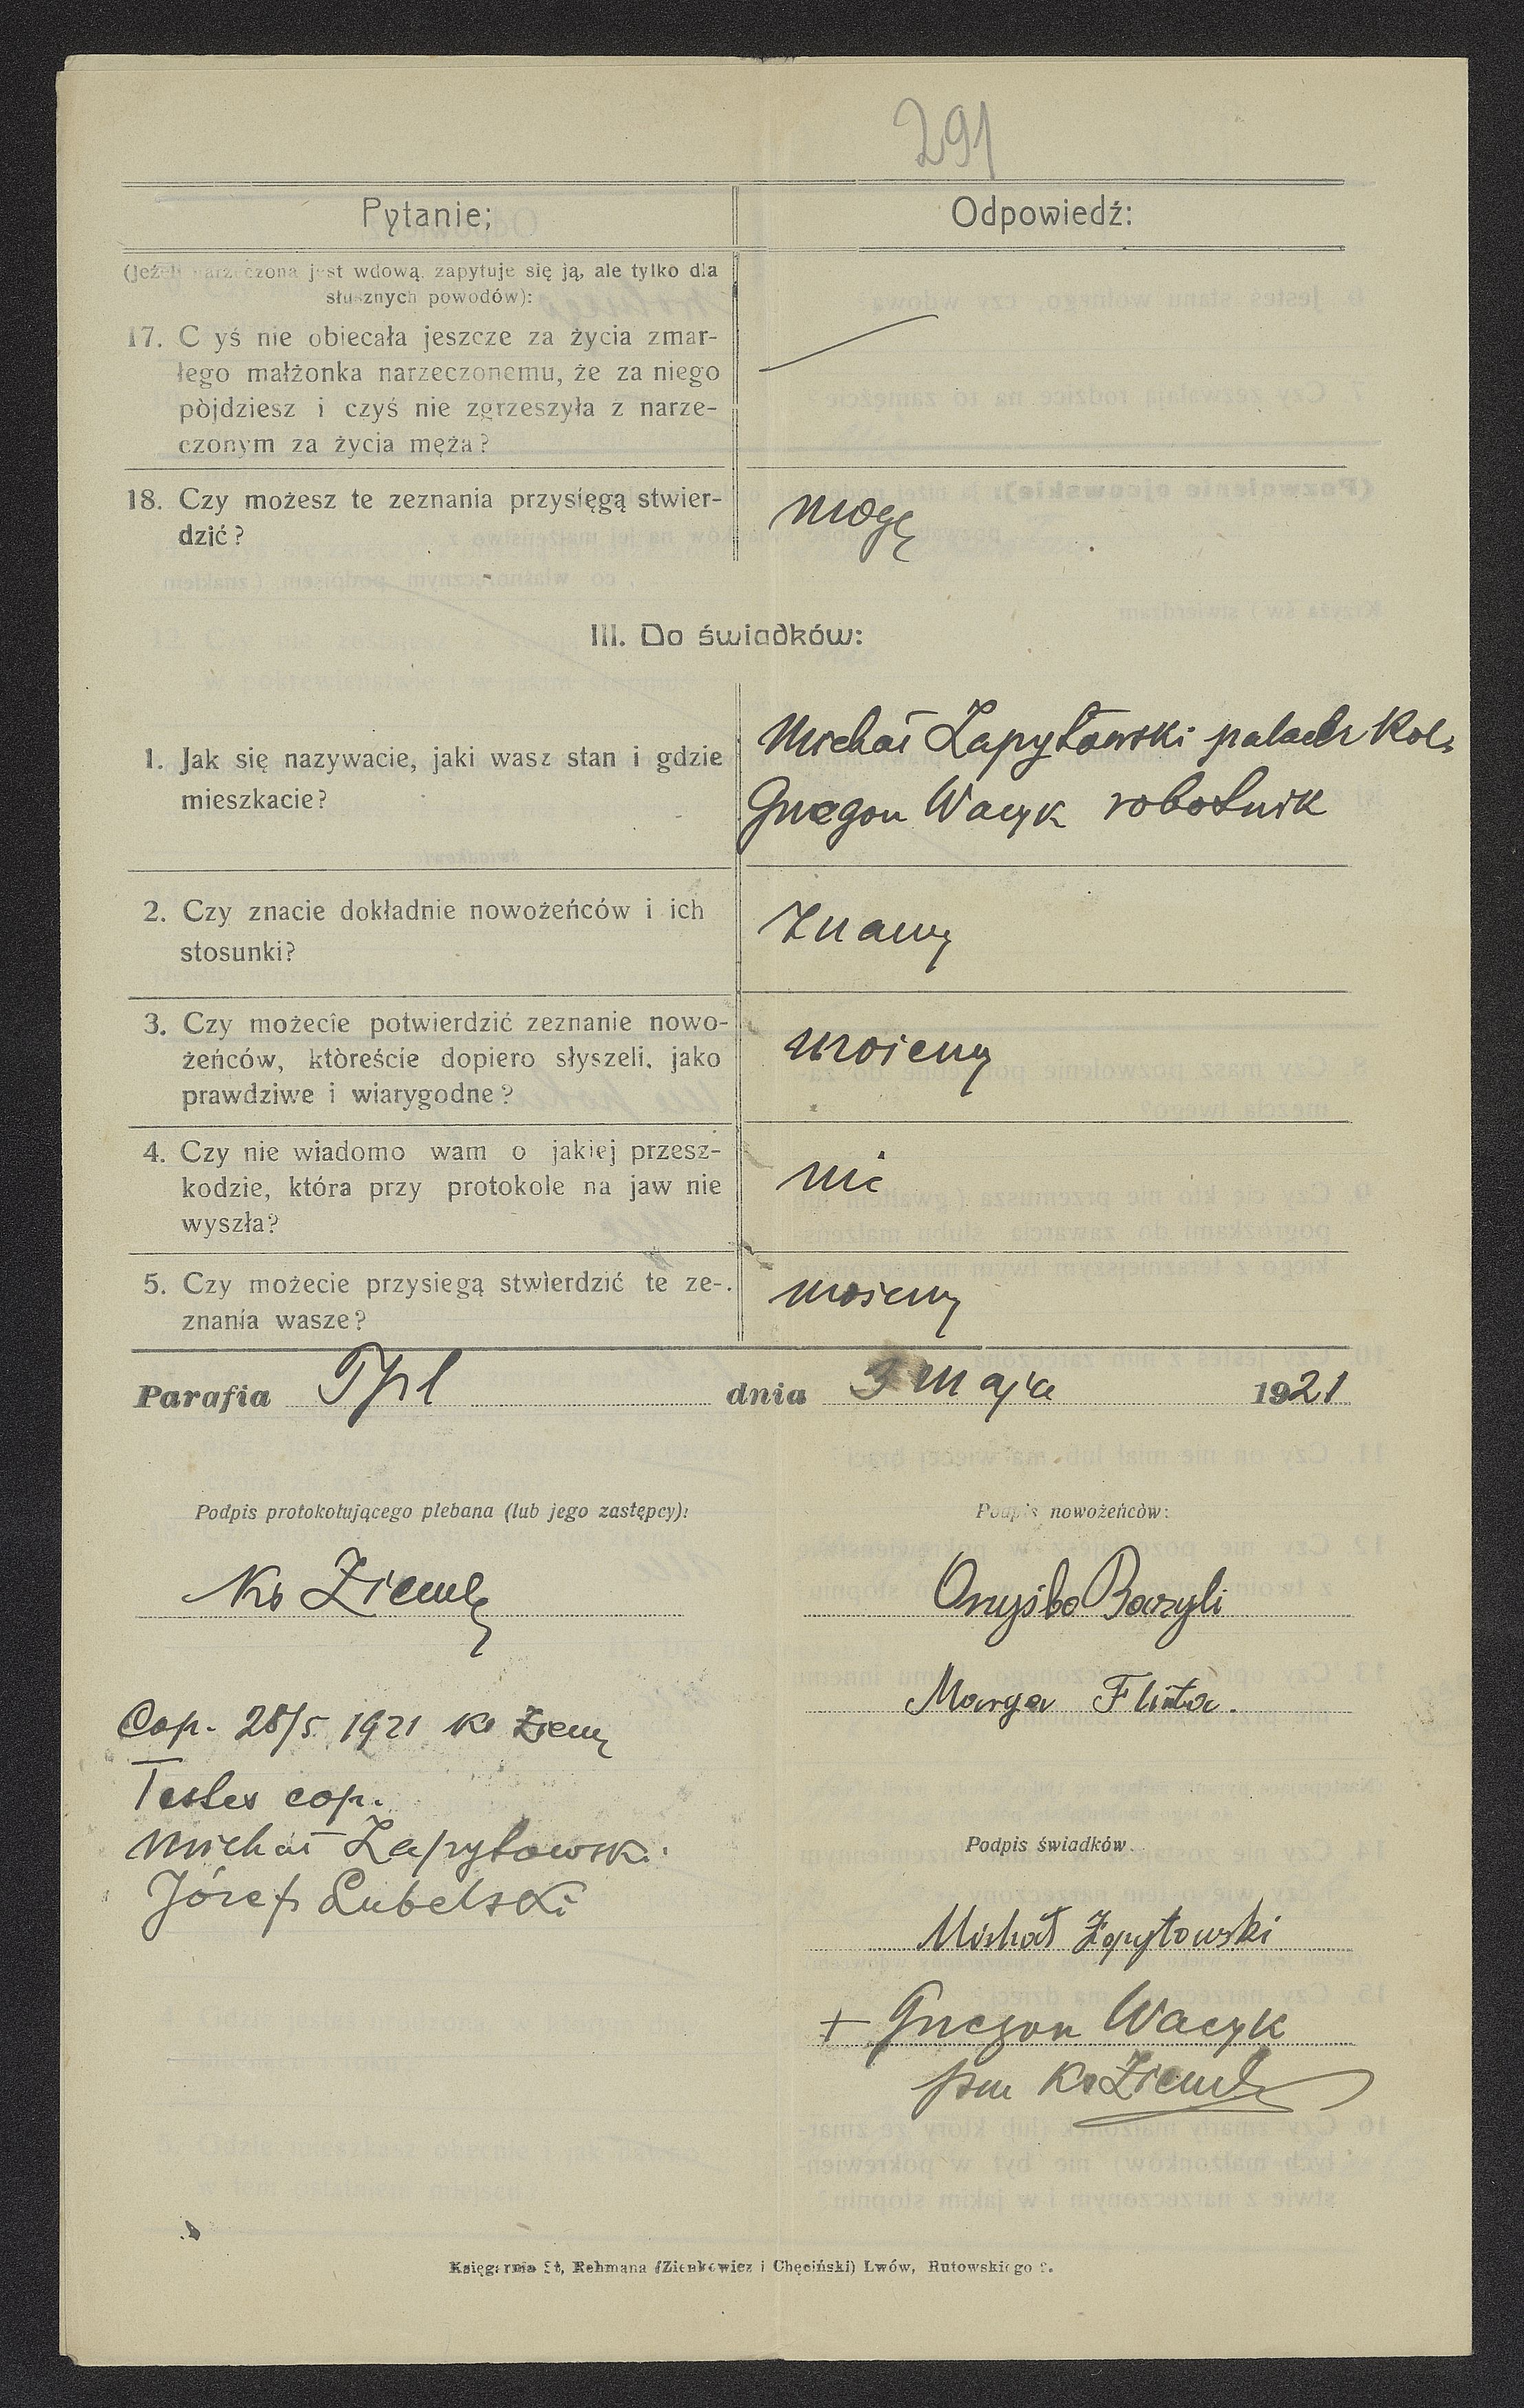 291
Pytanie;
Odpowiedź:
(Jeżeli narzeczona jest wdową, zapytuje się ją, ale tylko dla
słusznych powodów):
17. C yś nie obiecała jeszcze za życia zmar-
łego małżonka narzeczonemu, że za niego
pòjdziesz i czyś nie zgrzeszyła z narze-
czonym za życia męża?
18. Czy możesz te zeznania przysięgą stwier-
dzić?
mogę
III. Do świadków:
1. Jak się nazywacie, jaki wasz stan i gdzie
mieszkacie?
Michał Zapytowski palacz Kol.
Grzegorz Wacyk robotnik
2. Czy znacie dokładnie nowożeńców i ich
stosunki?
Znamy
3. Czy możecie potwierdzić zeznanie nowo-
żeńców, któreście dopiero słyszeli, jako
prawdziwe i wiarygodne?
możemy
4. Czy nie wiadomo wam o jakiej przesz-
kodzie, która przy protokole na jaw nie
wyszła?
nie
5. Czy możecie przysiegą stwierdzić te ze-
znania wasze?
możemy
Parafia dnia 3 Maja 1921
Podpis protokołującego plebana (lub jego zastępcy):
Ks Ziemb
Podpis nowożeńców:
Onyśko Bazyli
Marya Flinta.
Cop. 28/5 1921 Ks
Testes cop.
Michał Zapytowski
Józef Lubelski
Podpis świadków.
Michał Zapytowski
+ Grzegorz Wacyk
Ks
Księgarnia St, Rehmana (Zienkowicz i Chęciński) Lwów, Rutowskiego